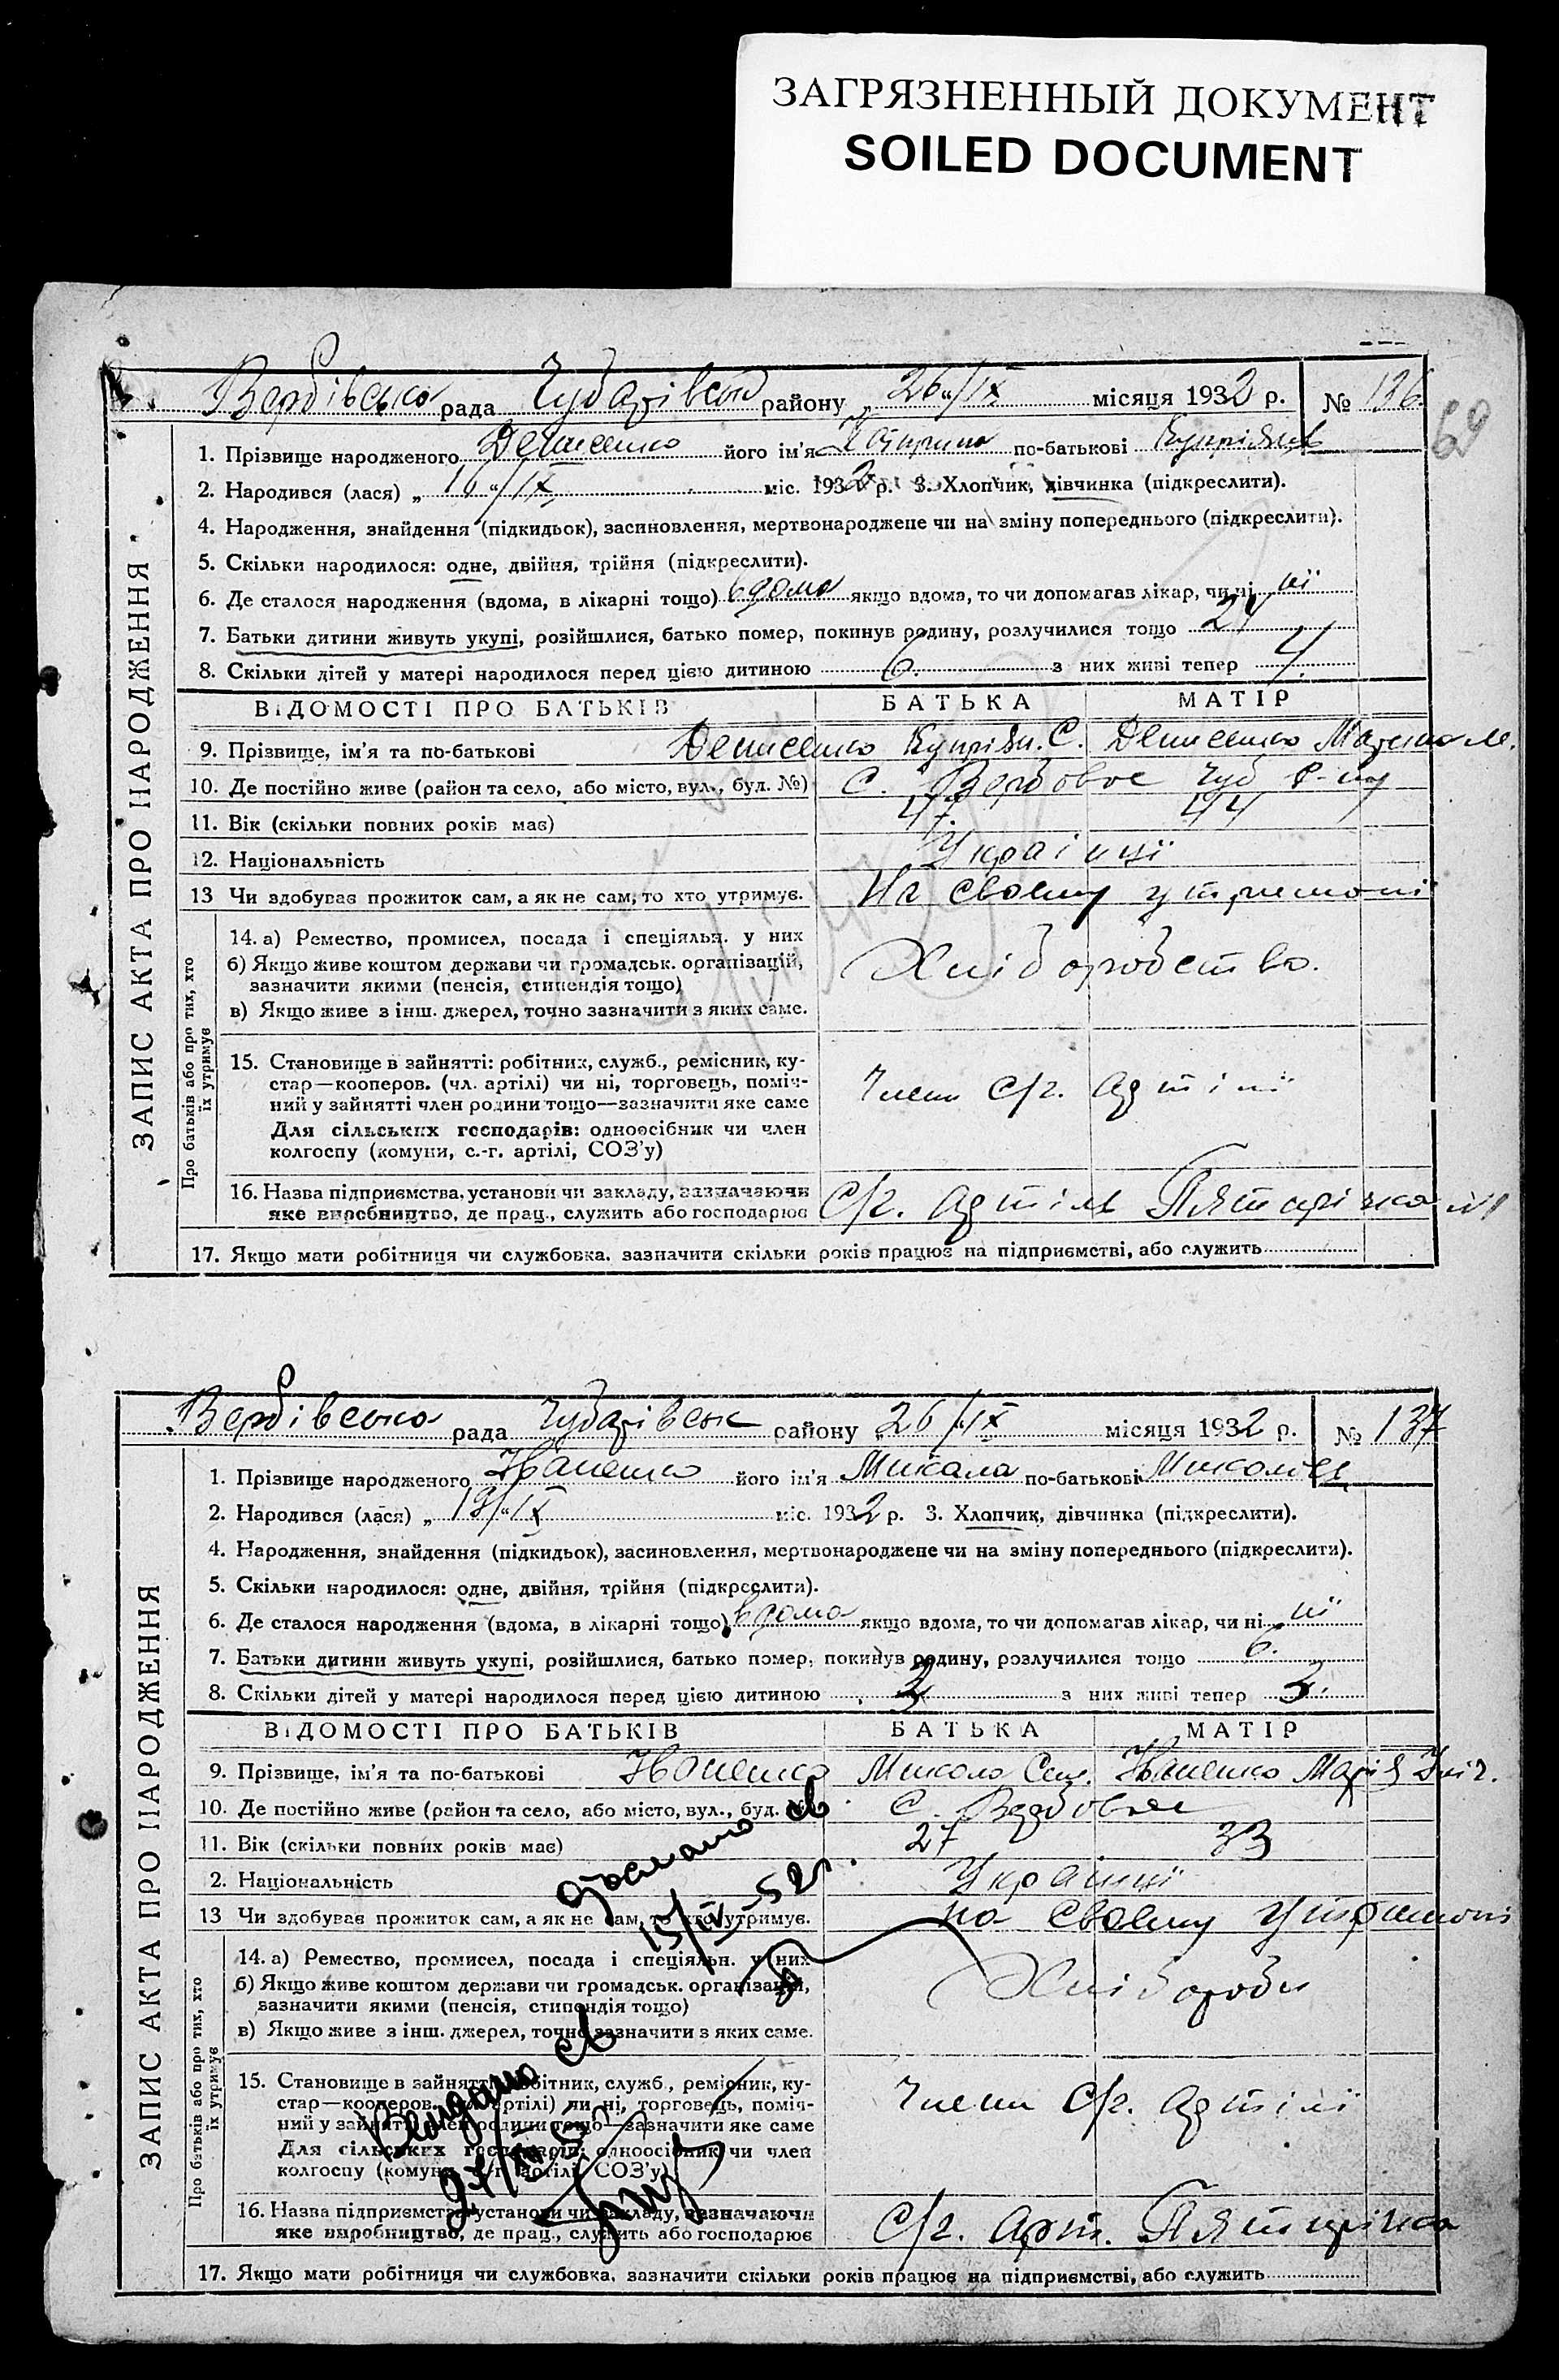 ЗАГРЯЗНЕННЫЙ ДОКУМЕНТ
SOILED DOCUMENT
Вербівська рада Чубарівськ району „26“/IX місяця 1932 р. № 136
69
ЗАПИС АКТА ПРО НАРОДЖЕННЯ
1. Прізвище народженого Денисенко його ім'я по-батькові
2. Народився (лася) „16“/IX міс. 1932 р. 3. Хлопчик, дівчинка (підкреслити).
4. Народження, знайдення (підкидьок), засиновлення, мертвонароджене чи на зміну попереднього (підкреслити).
5. Скільки народилося: одне, двійня, трійня (підкреслити).
6. Де сталося народження (вдома, в лікарні тощо) вдома якщо вдома, то чи допомагав лікар, чи ні ні
7. Батьки дитини живуть укупі, розійшлися, батько помер, покинув родину, розлучилися тощо 24
8. Скільки дітей у матері народилося перед цією дитиною 6. з них живі тепер 4.
ВІДОМОСТІ ПРО БАТЬКІВ БАТЬКА МАТІР
9. Прізвище, ім'я та по-батькові Денисенко Купріян. С. Денисенко М.
10. Де постійно живе (район та село, або місто, вул., буд. №) С. Вербовое Чуб р-ну
11. Вік (скільки повних років має) 47. 44
12. Національність Українці
13 Чи здобував прожиток сам, а як не сам, то хто утримує. На своему утримані
Про батьків або про тих, хто їх утримує
14. а) Ремество, промисел, посада і спеціяльн. у них
б) Якщо живе коштом держави чи громадськ. організацій, Хліборобство.
зазначити якими (пенсія, стипендія тощо)
в) Якщо живе з інш. джерел, точно зазначити з яких саме.
15. Становище в зайнятті: робітник, служб., ремісник, ку-
стар—кооперов. (чл. артілі) чи ні, торговець, поміч- Члени С/г. Артілі
ний у зайнятті член родини тощо—зазначити яке саме
Для сільських господарів: одноосібник чи член
колгоспу (комуни, с.-г. артілі, СОЗ'у)
16. Назва підприємства, установи чи закладу, зазначаючи
яке виробництво, де прац., служить або господарює С/г. Артіль Пятирічка №1
17. Якщо мати робітниця чи службовка, зазначити скільки років працює на підприємстві, або служить
Вербівська рада Чубарівськ району „26“/IX місяця 1932 р. № 137
ЗАПИС АКТА ПРО НАРОДЖЕННЯ
1. Прізвище народженого Іваненко його ім'я Микала по-батькові
2. Народився (лася) „19“/IX міс. 1932 р. 3. Хлопчик, дівчинка (підкреслити).
4. Народження, знайдення (підкидьок), засиновлення, мертвонароджене чи на зміну попереднього (підкреслити).
5. Скільки народилося: одне, двійня, трійня (підкреслити).
6. Де сталося народження (вдома, в лікарні тощо) вдома якщо вдома, то чи допомагав лікар, чи ні ні
7. Батьки дитини живуть укупі, розійшлися, батько помер, покинув родину, розлучилися тощо 6.
8. Скільки дітей у матері народилося перед цією дитиною з них живі тепер
ВІДОМОСТІ ПРО БАТЬКІВ БАТЬКА МАТІР
9. Прізвище, ім'я та по-батькові Іваненко Микола Сем. Іваненко Марія
10. Де постійно живе (район та село, або місто, вул., буд. №) С. Вербовое
11. Вік (скільки повних років має) 27 33
2. Національність Українці
13 Чи здобував прожиток сам, а як не сам, то хто утримує. на своему утримані
15/IV-52г.
Про батьків або про тих, хто їх утримує
14. а) Ремество, промисел, посада і спеціяльн. у них
б) Якщо живе коштом держави чи громадськ. організацій, Хлібороби
зазначити якими (пенсія, стипендія тощо)
в) Якщо живе з інш. джерел, точно зазначити з яких саме.
15. Становище в зайнятті: робітник, служб., ремісник, ку-
стар—кооперов. (чл. артілі) чи ні, торговець, поміч- Члени С/г. Артілі
ний у зайнятті член родини тощо—зазначити яке саме
Для сільських господарів: одноосібник чи член
колгоспу (комуни, с.-г. артілі, СОЗ'у)
16. Назва підприємства, установи чи закладу, зазначаючи
яке виробництво, де прац., служить або господарює С/г. Арт. Пятирічка
17. Якщо мати робітниця чи службовка, зазначити скільки років працює на підприємстві, або служить